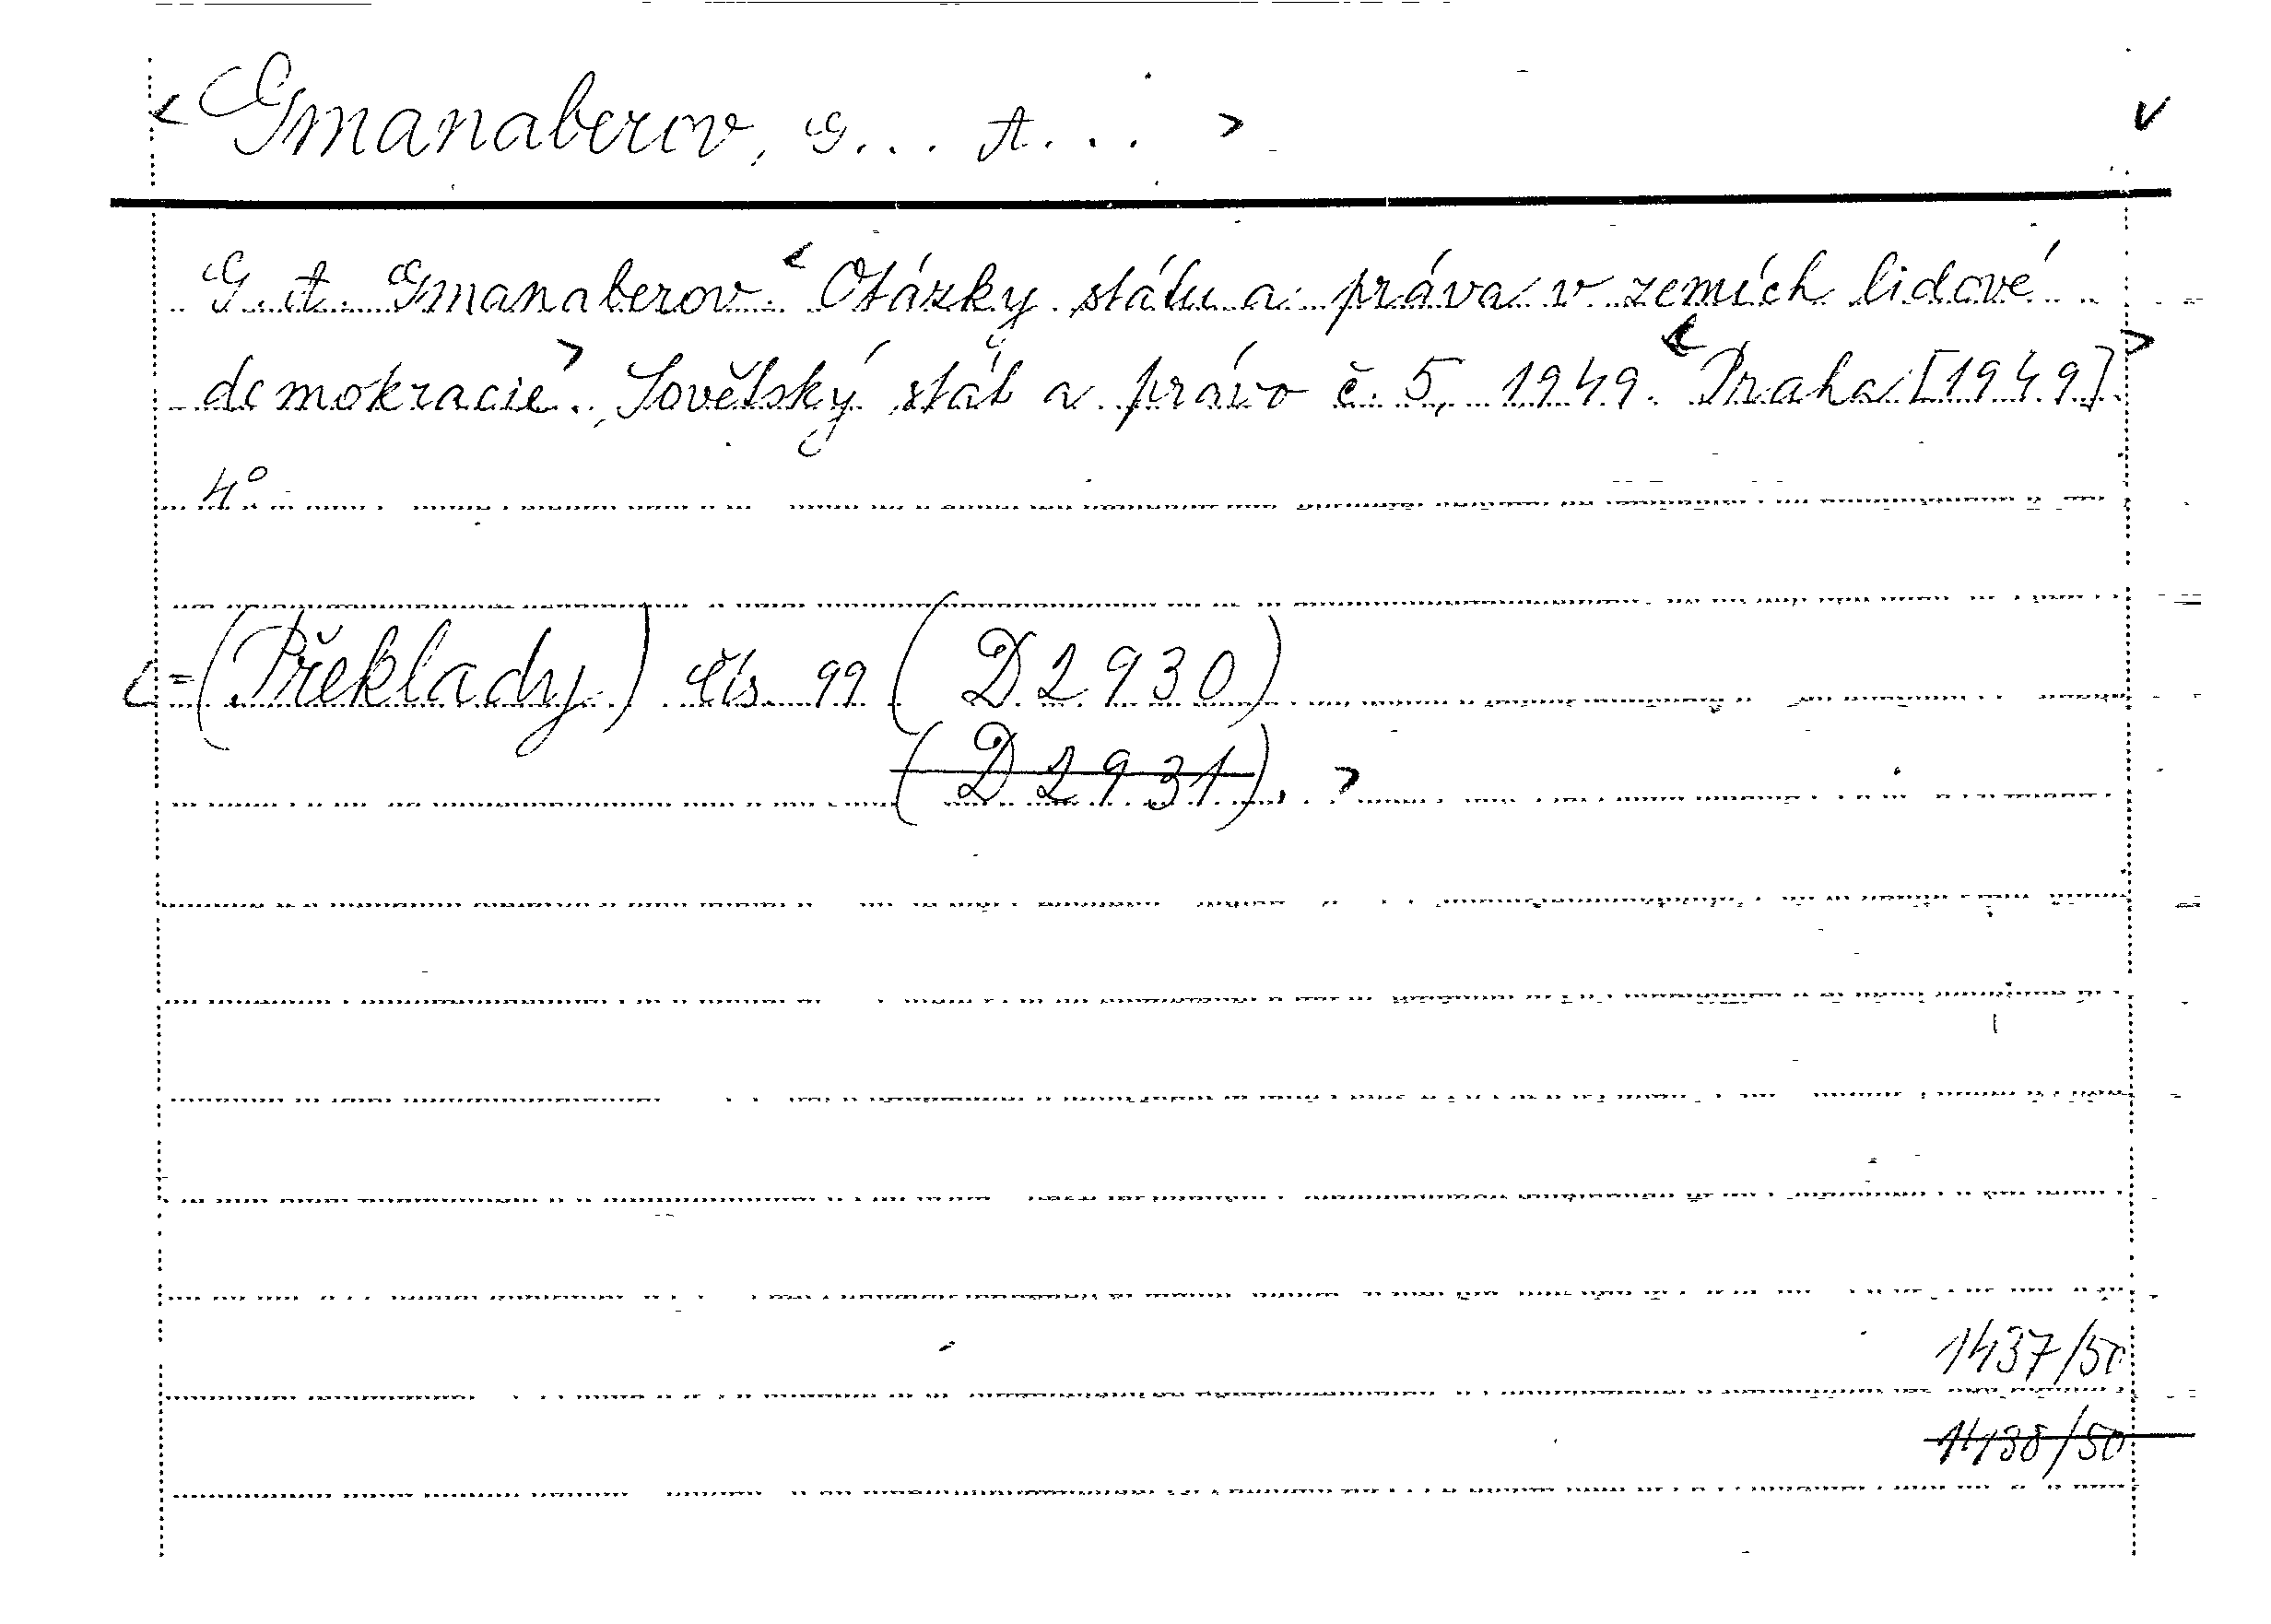 < Gmanaberov, G... A... > v
G. A. Gmanaberov. < Otázky státu a práva v zemích lidové
demokracie >. Sovětský stát a právo č. 5, 1949. < Praha [1949]. >
4°.
<=(Překlady) čís. 99 (D 2930)
(D 2931). >
1437/50
1438/50